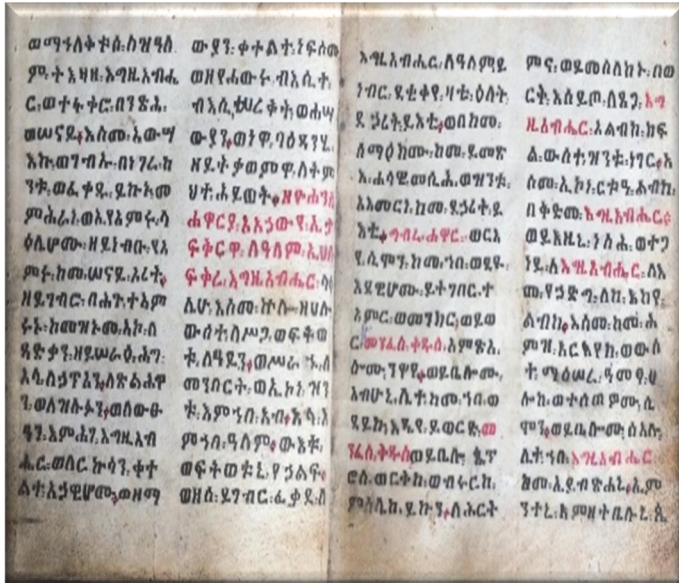 ወማኅለቅቱሰ፡ለዝዓለ
ም፡ትእዛዘ፡እግዚአብሔ
ር፡ወተፋቅሮ፡በንጹሕ፡
ወሠናይ፡እስመ፡ኢውሣ
እኩ፡ወገብኡ፡በነገረ፡ከ
ንቱ፡ወፈቀዱ፡ይኩኑ፡መ
ምሕራነ፡ወኢየአምሩ፡ላ
ዕሌሆሙ፡ዘይነብቡ፡የአ
ምሩ፡ከመ፡ሠናይ፡ኦሪት፡
ዘይገብር፡በሕጉ፡ተአም
ሩኑ፡ከመዝኑመ፡ኢኮነ፡ለ
ጻድቃን፡ዘይሠራዕ፡ሕግ፡
አላ፡ለኃጥኣን፡ለጽልሐዋ
ን፡ወለዝሉፋን፡ወለውፁ
ዓን፡እምሕገ፡እግዚአብ
ሔር፡ወለርኩሳን፡ቀተ
ልተ፡አኃዊሆሙ፡ወዘማ
ውያን፡ቀተልተ፡ነፍሰ
ወዘየሐውሩ፡ብእሲተ፡
ብእሲ፡ወሐሣ
ውያን፡ወነዋ
ዘይትቃወምዋ፡ለትም
ህተ፡ሕይወት፡ዘዮሐንስ
ሐዋርያ፡አኃውየ፡ኢታ
ፍቅርዋ፡ለዓለም፡ኢሀሎ
ፍቅረ፡እግዚአብሔር፡ላዕ
ሌሁ፡እስመ፡ኵሉ፡ዘሀሎ
ውስተ፡ለሥጋ፡ወፍትወ
ቱ፡ለዓይን፡ወሥራኁ፡ለ
መንበርት፡ወኢኮነ፡ዝን
ቱ፡እምኀበ፡አብ፡አላ፡እ
ምኀበ፡ዓለም፡ውእቱ፡
ወፍትወቱኒ፡የኃልፍ፡
ወዘሰ፡ይገብር፡ፈቃዶ፡ለ
እግዚአብሔር፡ለዓለም፡ይ
ነብር፡ደቂቀየ፡ዛቲ፡ዕለት፡
ደኃሪት፡ይእቲ፡ወበከመ፡
ሰማዕክሙ፡ከመ፡ይመጽ
እ፡ሐሳዌ፡መሲሕ፡ወዝንቱ፡
አእመርነ፡ከመ፡ደኃሪት፡ይ
እቲ፡ግብረ፡ሐዋር፡ወርእ
የ፡ሲሞን፡ከመ፡ኀበ፡ወደዩ፡
እደዊሆሙ፡ይትገበር፡ተ
አምር፡ወመንክር፡ወይወ
ር፡መንፈስ፡ቅዱስ፡አምጽአ፡
ሎሙ፡ንዋየ፡ወይቤሎሙ፡
አብሁኒ፡ሊተ፡ከመ፡ኀበ፡ወ
ደይኩ፡እዴየ፡ይወርድ፡መ
ንፈስ፡ቅዱስ፡ወይቤሎ፡ጴጥ
ሮስ፡ወርቅከ፡ወብሩርከ፡
ምስሌከ፡ይኩን፡ለሕርት
ምና፡ወይመስለከኑ፡በወ
ርቅ፡እሰይጦ፡ለጸጋ፡እግ
ዚአብሔር፡አልብከ፡ክፍ
ል፡ውስተ፡ዝንቱ፡ነገር፡እ
ስመ፡ኢኮነ፡ርቱዓ፡ልብከ፡
በቅድመ፡እግዚአብሔር፡
ወይእዜኒ፡ነስሐ፡ወተጋ
ነይ፡ለእግዚአብሔር፡ለእ
መ፡የኃድግ፡ለከ፡እከየ፡
ልብከ፡እስመ፡ከመ፡ሕ
ምዝ፡እርእየከ፡ወውስ
ተ፡ማዕሠረ፡ዓመፃ፡ሀ
ሎከ፡ወተሰጠዎሙ፡ሲ
ሞን፡ወይቤሎሙ፡ሰአሉ፡
ሊተ፡ኀበ፡እግዚአብሔር፡
ከመ፡ኢይብጽሐኒ፡ኢም
ንተኒ፡እምዘትቤሉኒ፡